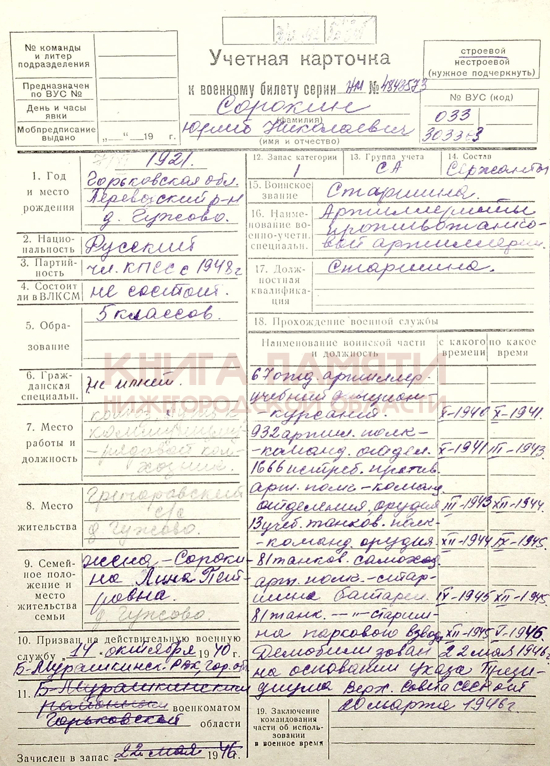 № команды
и литер
подразделения
Предназначен
по ВУС №
День и часы
явки
Мобпредписание
выдано „ “ 19 г.
Учетная карточка
к военному билету серии НМ №
Сорокин
(фамилия)
Юрий Николаевич
(имя и отчество)
строевой
нестроевой
(нужное подчеркнуть)
№ ВУС (код)
033
1. Год
и место
рождения
1921.
Горьковская обл.
р-н
д. Гужово.
2. Нацио-
нальность
Русский
3. Партий-
ность
чл. КПСС с 1948 г
4. Состоит
ли в ВЛКСМ
не состоит.
5. Обра-
зование
5 классов.
6. Граж-
данская
специальн.
не имеет.
7. Место
работы и
должность
рядовой кол-
хозник.
8. Место
жительства
с/с
д Гужово.
9. Семей-
ное поло-
жение и
место
жительства
семьи
жена – Сороки-
на Лина Пет-
ровна.
д Гужово.
10. Призван на действительную военную
службу 14 октября 1940 г.
Б-Мурашкинск. РВК гор. обл
11. Б-Мурашкинским
военкоматом
Горьковской области
Зачислен в запас 22 мая 1946 г.
12. Запас категории
1
13. Группа учета
СА
14. Состав
Сержантск
15. Воинское
звание
Старшина.
16. Наиме-
нование во-
енно-учетн.
специальн.
Артиллеристы
противотанко-
вой артиллерии.
17. Долж-
ностная
квалифика-
ция
Старшина.
18. Прохождение военной службы
Наименование воинской части
и должность
с какого
времени
по какое
время
67 артиллер.
учебный дивизион
– курсант. X-1940 X-1941.
932 артил. полк –
– команд. отдел. X-1941 III-1943.
1666 истреб. против.
арт. полк – команд
отделения орудия III-1943 XII-1944.
13 учеб. танков. полк –
– команд. орудия XII-1944 IX-1945.
81 танков. самоход.
арт. полк – стар-
шина батареи IX-1945 XII-1945.
81 танк. – „ – старши-
на паркового взвода XII-1945 V-1946.
Демобилизован 22 мая 1946 г
на основании Указа Прези-
диума Верх. Совета СССР от
20 марта 1946 г
19. Заключение
командования
об использо-
вании
в военное время
КНИГА ПАМЯТИ
НИЖЕГОРОДСКОЙ ОБЛАСТИ